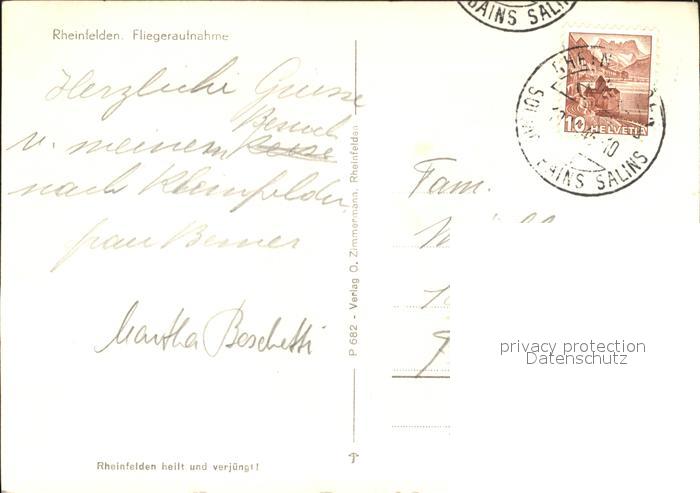 Rheinfelden. Fliegeraufnahme
Herzliche Grüsse
Besuch
v. meinem
nach Rheinfelden
frau Berner
Martha Boschetti
Rheinfelden heilt und verjüngt!
P 682 - Verlag O. Zimmermann, Rheinfelden
BAINS SALINS
10 HELVETIA
RHEIN
SOL
BAINS SALINS
Fam.
privacy protection
Datenschutz